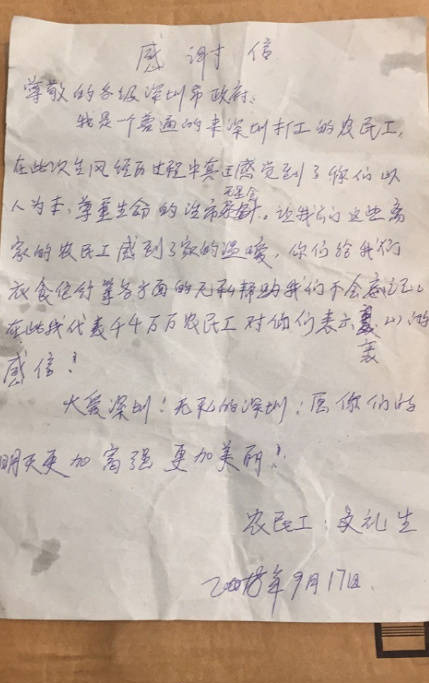 感谢信
尊敬的各级深圳市政府、
我是一个普通的来深圳打工的农民工,
在此次台风经历过程中真正感觉到了你们以
人为本,尊重生命的 让我们这些离
家的农民工感到了家的温暖,你们给我们
衣食住行等各方面的无私帮助我们不会忘记.
在此我代表千千万万农民工对你们表示衷心的
感信!
大爱深圳!无私的深圳!愿你们的
明天更加富强更加美丽!
农民工:文礼生
年9月17日.